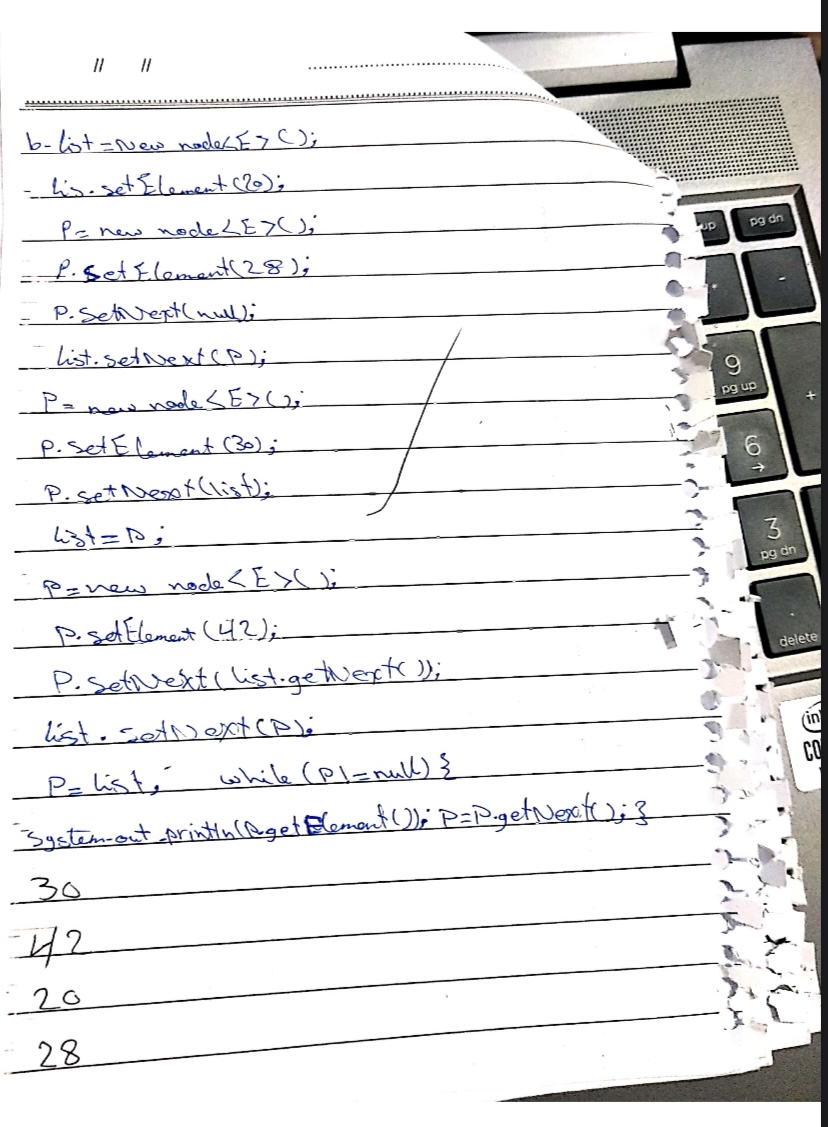 // //
b- list = New node<E>();
- lis.setElement(20);
P = new node<E>();
P.setElement(28);
P.setNext(null);
list.setNext(P);
P = new node<E>();
P.setElement(30);
P.setNext(list);
list = P;
P = new node<E>();
P.setElement(42);
P.setNext(list.getNext());
list.setNext(P);
P = list; while(P!=null){
System.out.println(P.getElement()); P=P.getNext();}
30
42
20
28
up
pg dn
-
9
pg up
+
6
→
3
pg dn
.
delete